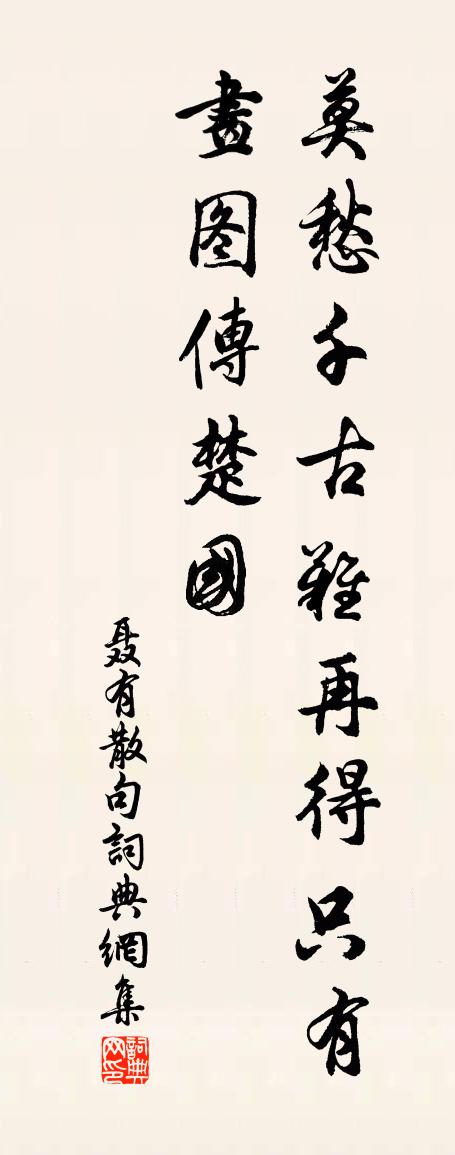 莫愁千古難再得只有
畫图傳楚國
聂有散句詞典網集
詞典网印